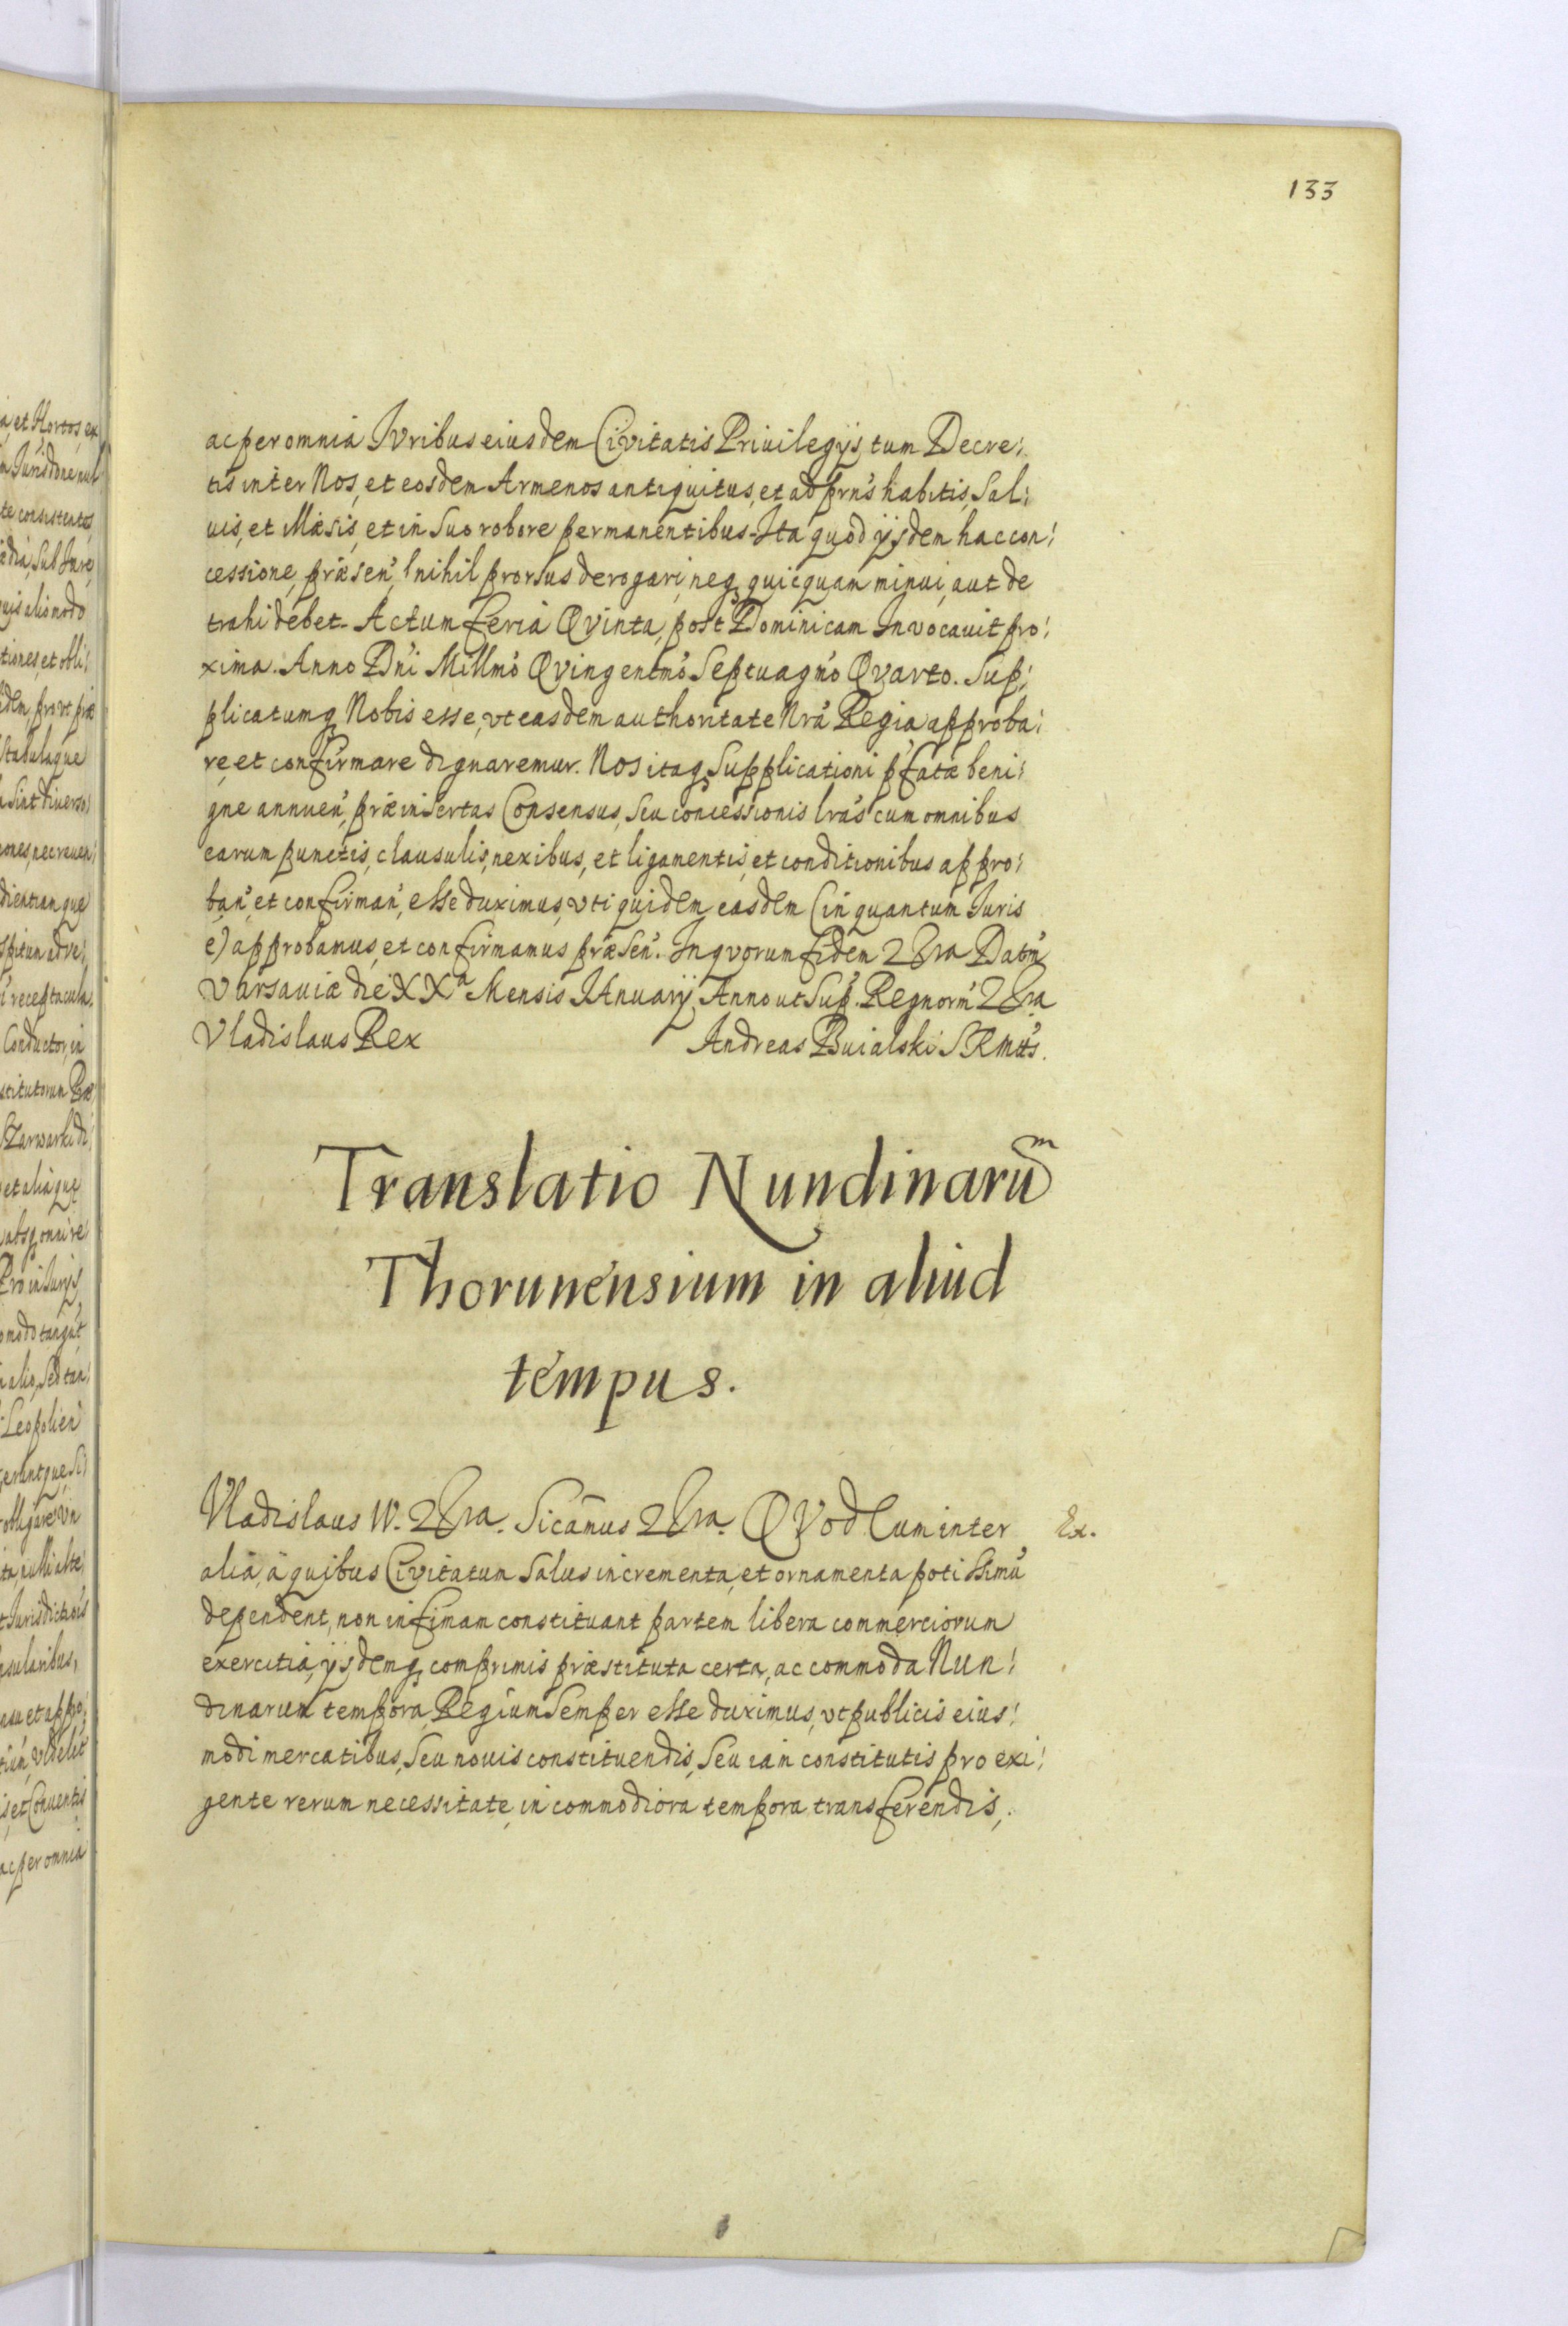 133
ac per omnia Jvribus eiusdem Civitatis Priuilegijs, tum Decre:
tis inter Nos, et eosdem Armenos antiquitus, et ad prn's habitis, Sal:
uis, et Illæsis, et in Suo robore permanentibus. Ita quod ijsdem hac con:
cessione, præsen', nihil prorsus derogari, neq; quicquam minui, aut de
trahi debet. Actum feria Qvinta, post Dominicam Invocauit pro:
xima. Anno Dn'i Millm'o Qvingentm'o Septuagm'o Qvarto. Sup:
plicatumq; Nobis esse, vt easdem authoritate Nr'a Regia approba:
re, et confirmare dignaremur. Nos itaq; Supplicationi p'fatæ beni:
gne annuen', præinsertas Consensus, Seu concessionis lr'as cum omnibus
earum punctis, clausulis, nexibus, et ligamentis, et conditionibus appro:
ban', et confirman', esse duximus, vti quidem easdem (in quantum Juris
e) approbamus, et confirmamus præsen'. In qvorum fidem Datm'
Varsauiæ die XXa Mensis JAnuarij Anno ut Sup'. Regnorm'
Vladislaus Rex Andreas Buialski SRMtts.
Translatio Nundinarũm
Thorunensium in aliud
tempus.
Vladislaus IV. Sicãmus QVod Cum inter Ex.
alia, à quibus Civitatum Salus incrementa, et ornamenta potissimu'
dependent, non infimam constituant partem libera commerciorum
exercitia, ijsdemq; comprimis præstituta certa, ac commoda Nun:
dinarum tempora, Regium Semper esse duximus, vt publicis eius:
modi mercatibus, Seu nouis constituendis, Seu iam constitutis pro exi:
gente rerum necessitate, in commodiora tempora transferendis,